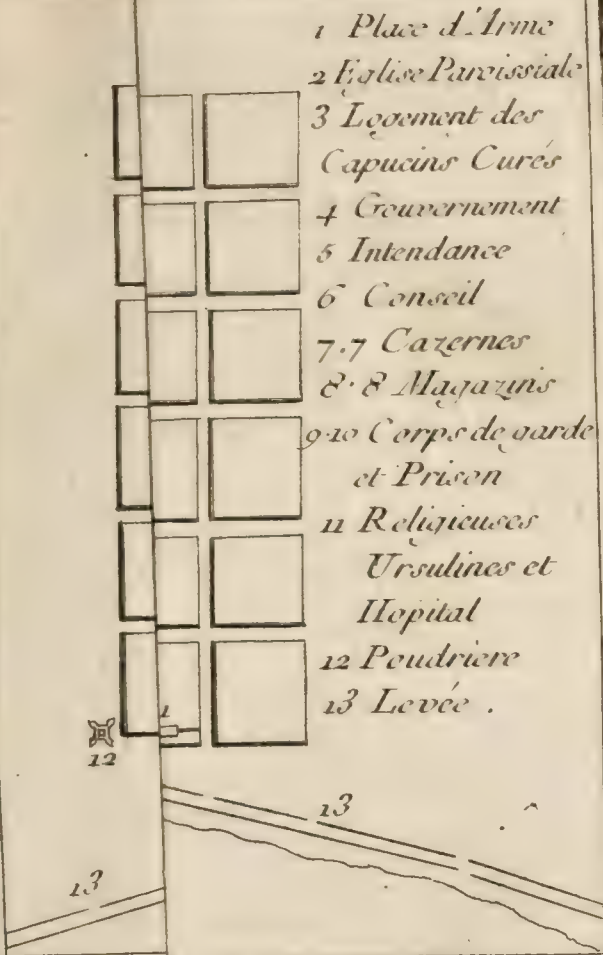 1 Place d'Arme
2 Eglise Paroissiale
3 Logement des
Capucins Curés
4 Gouvernement
5 Intendance
6 Conseil
7.7 Cazernes
8.8 Magazins
9.10 Corps de garde
et Prison
11 Religieuses
Ursulines et
Hopital
12 Poudriere
13 Levée .
1
12
13
13